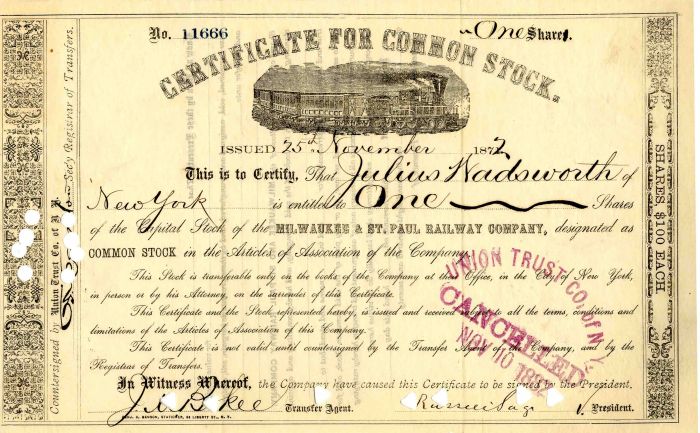 No. 11666
One Shares.
CERTIFICATE FOR COMMON STOCK.
ISSUED 25th November 1872
This is to Certify, That Julius Wadsworth of
New York is entitled to ONE Shares
of the Capital Stock of the MILWAUKEE & ST. PAUL RAILWAY COMPANY, designated as
COMMON STOCK in the Articles of Association of the Company.
This Stock is transferable only on the books of the Company at their Office, in the City of New York,
in person or by his Attorney, on the surrender of this Certificate.
This Certificate and the Stock represented hereby, is issued and received subject to all the terms, conditions and
limitations of the Articles of Association of this Company.
This Certificate is not valid until countersigned by the Transfer Agent of the Company, and by the
Registrar of Transfers.
In Witness Whereof, the Company have caused this Certificate to be signed by the President.
Transfer Agent. Russell Sage V. President.
SHARES $100 EACH
Countersigned by Union Trust Co. of N.Y.
Sec'y Registrar of Transfers.
UNION TRUST CO. of N.Y.
CANCELLED
NOV 10